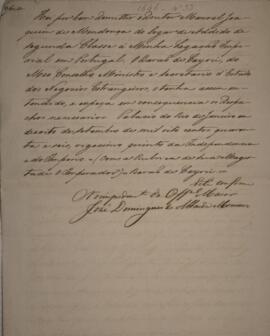 1846 Nº 53
Hei por bem demittir o Doutor Manoel Joa-
quim de Mendonça do lugar de Addido de
segunda Classe á Minha Legação Impe-
rial em Portugal. O Barão de Cayrú, do
Meo Conselho Ministro e Secretario d'Estado
dos Negocios Estrangeiros, o tenha assim en-
tendido, e expeça em consequencia os despa-
chos necessarios. Palacio do Rio de Janeiro em
dezoito de Setembro de mil oito centos quaren-
ta e seis, vigesimo quinto da Independencia
e do Imperio = Com a Rubrica de Sua Mages-
tade o Imperador = Barão de Cayrú =
Está conforme
No impedimto do Offal Maior
José Domingues de Attaide Moncorvo